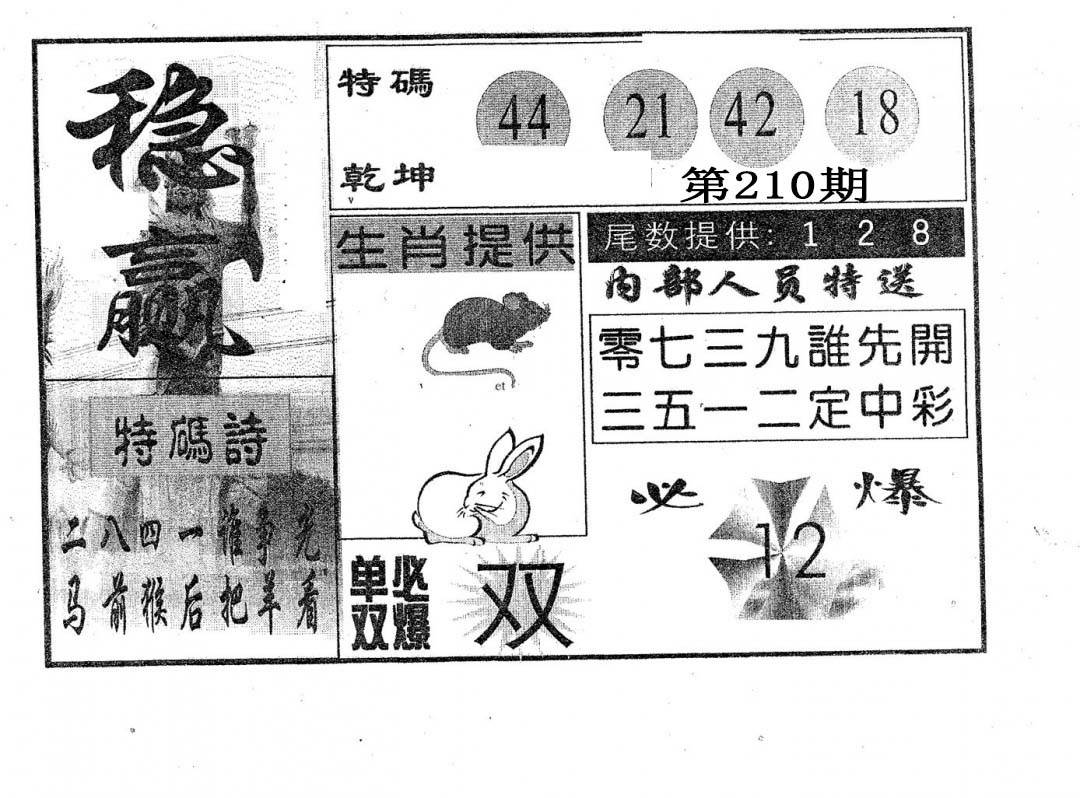 稳赢
特碼 44 21 42 18
乾坤
第210期
生肖提供
尾数提供: 1 2 8
内部人员特送
零七三九誰先開
三五一二定中彩
特碼詩
二八四一谁争先
马前猴后把羊看
必 12 爆
单双必爆 双
et